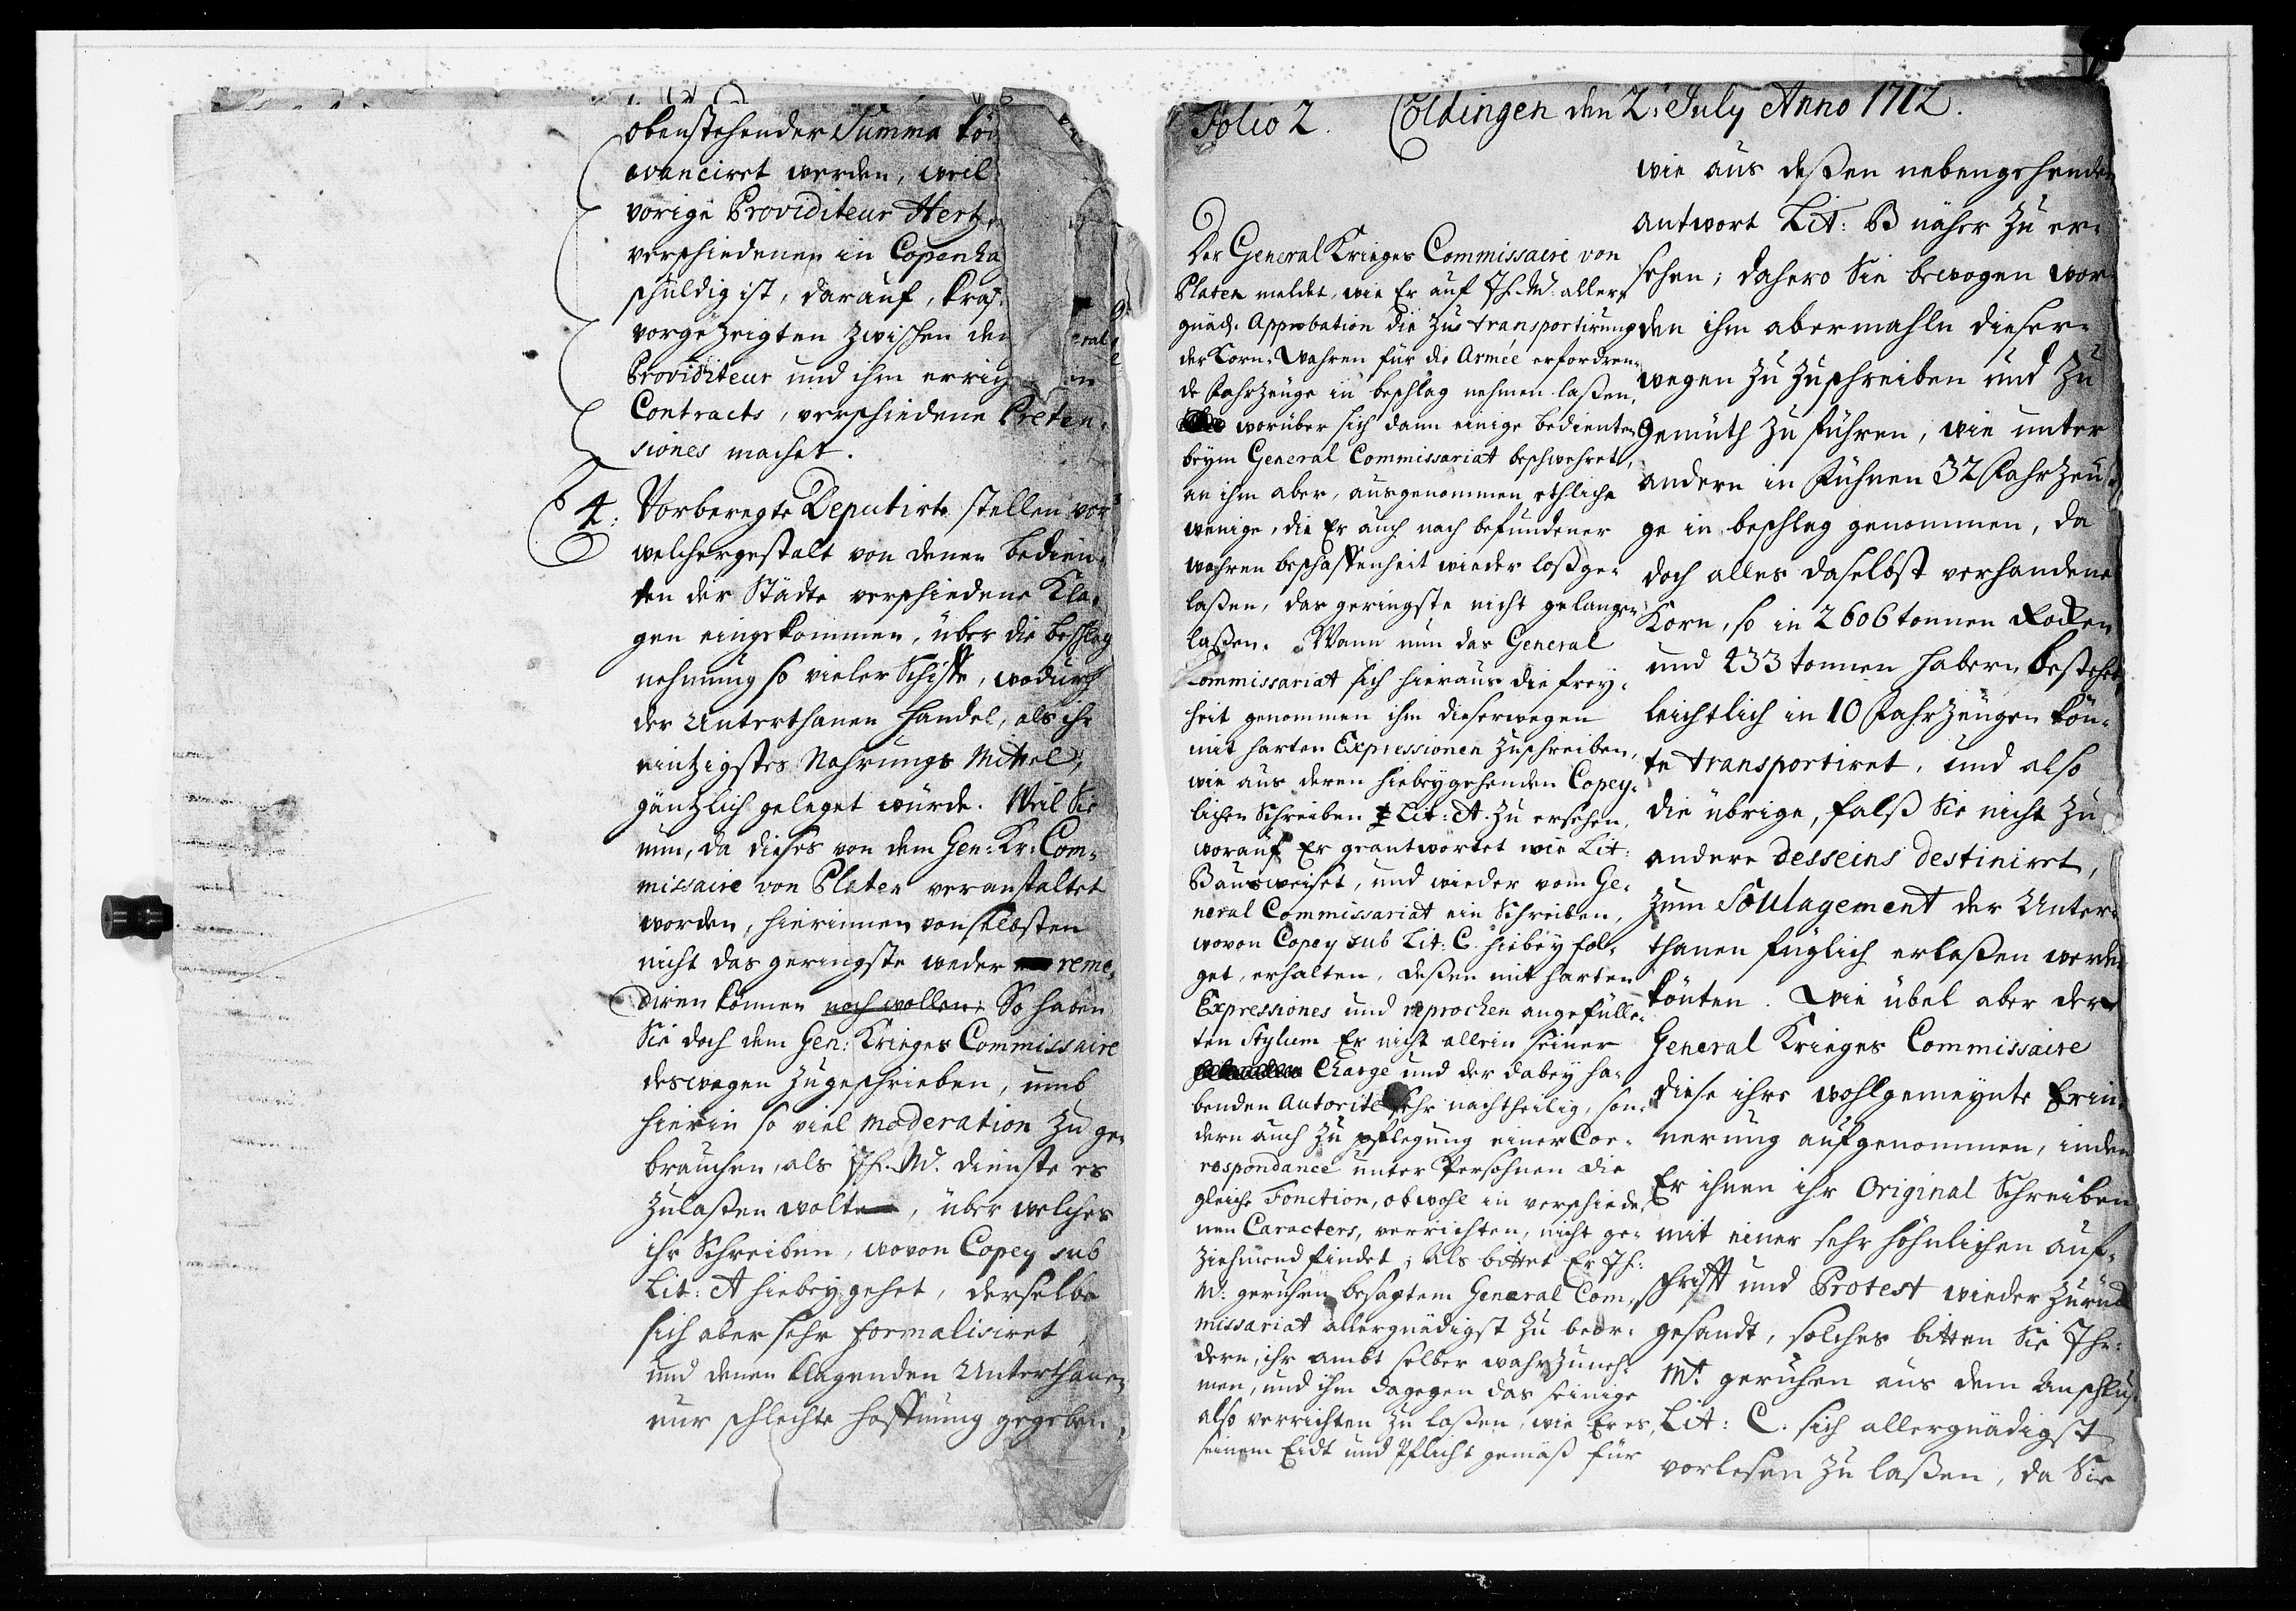 obenstehender Summa kön
avanciret werden, weil
vorige Providiteur Hertz
verschiedenen in Copenha
schuldig ist, darauf, kraf
vorgezeigten zwischen den eral
Providiteur und ihm errich en
Contracts, verschiedene Preten-
siones machet.
4. Vorberegte Deputirte stellen vor
welchergestalt von denen bedien-
ten der Städte verschiedene Kla-
gen eingekommen, über die beschlag
nehmung so vieler Schiffe, wodurch
der Unterthanen handel, als ihr
eintzigstes Nahrungs Mittel,
gäntzlich geleget würde. Weil Sie
nun, da dieses von dem Gen: Kr: Com-
missaire von Platen veranstaltet
worden, hierinnen von selbsten
nicht das geringste weder reme-
diren können noch wollen; So haben
Sie doch dem Gen: Krieges Commissaire
deswegen zugeschrieben, umb
hierin so viel moderation zu ge-
brauchen, als Ih. M. dienste es
zulaßen wolte, über welches
ihr Schreiben, wovon Copey sub
Lit: A hiebey gehet, derselbe
sich aber sehr formalisiret
und denen klagenden Unterthanen
nur schlechte hoffnung gegeben,
Folio 2. Coldingen den 2. July Anno 1712.
Der General Krieges Commissaire von
Platen meldet, wie Er auf Ih. M. aller-
gnäd. Approbation die zu transportirung
der Korn-Wahren für die Armée erfordren-
de fahrzeuge in beschlag nehmen laßen,
worüber sich dann einige bedienten
beym General Commissariat beschwehret,
an ihm aber, ausgenommen etliche
wenige, die Er auch nach befundener
wahren beschaffenheit wieder loßge-
laßen, das geringste nicht gelangen
laßen. Wann nun das General
Commissariat sich hieraus die frey-
heit genommen ihm dieserwegen
mit harten Expressionen zuschreiben,
wie aus deren hiebeygehenden Copey-
lichen Schreiben Lit: A. zu ersehen,
worauf Er geantwortet wie Lit:
B ausweiset, und wieder vom Ge-
neral Commissariat ein Schreiben,
wovon Copey sub Lit: C. hiebey fol-
get, erhalten, deßen mit harten
Expressiones und reprochen angefülle-
ten Stylum Er nicht allein seiner
Charge und der dabey ha-
benden Autorité sehr nachtheilig, son-
dern auch zu pflegung einer Cor-
respondance unter Persohnen die
gleiche Fonction, obwohl in verschiede-
nen Caracters, verrichten, nicht ge-
ziehmend findet; Als bittet Er Ih:
M: geruhen besagtem General Com-
missariat allergnädigst zu beor-
dern, ihr ambt selber wahrzuneh-
men, und ihm dagegen das seinige
also verrichten zu laßen, wie Er es
seinem Eidt und Pflicht gemäß für
wie aus deßen nebengehenden
Antwort Lit: B näher zu er-
sehen; dahero Sie bewogen wor-
den ihm abermahln dieser-
wegen zu zuschreiben und zu
Gemüth zu führen, wie unter
andern in Fühnen 32 Fahrzeu-
ge in beschlag genommen, da
doch alles daselbst verhandene
Korn, so in 2606 tonnen Rocken
und 233 tonnen habern bestehet,
leichtlich in 10 Fahrzeugen kön-
te transportiret, und also
die übrige, falß Sie nicht zu
andere desseins destiniret,
zum Soulagement der Unter-
thanen füglich erlaßen werden
könten. Wie übel aber der
General Krieges Commissaire
diese ihre wohlgemeynte Erin-
nerung aufgenommen, indem
Er ihnen ihr Original Schreiben
mit einer sehr höhnlichen auf-
schrifft und Protest wieder zurück
gesandt, solches bitten Sie Ihr:
Mt. geruhen aus dem Anschluß
Lit: C. sich allergnädigst
vorlesen zu laßen, da Sie